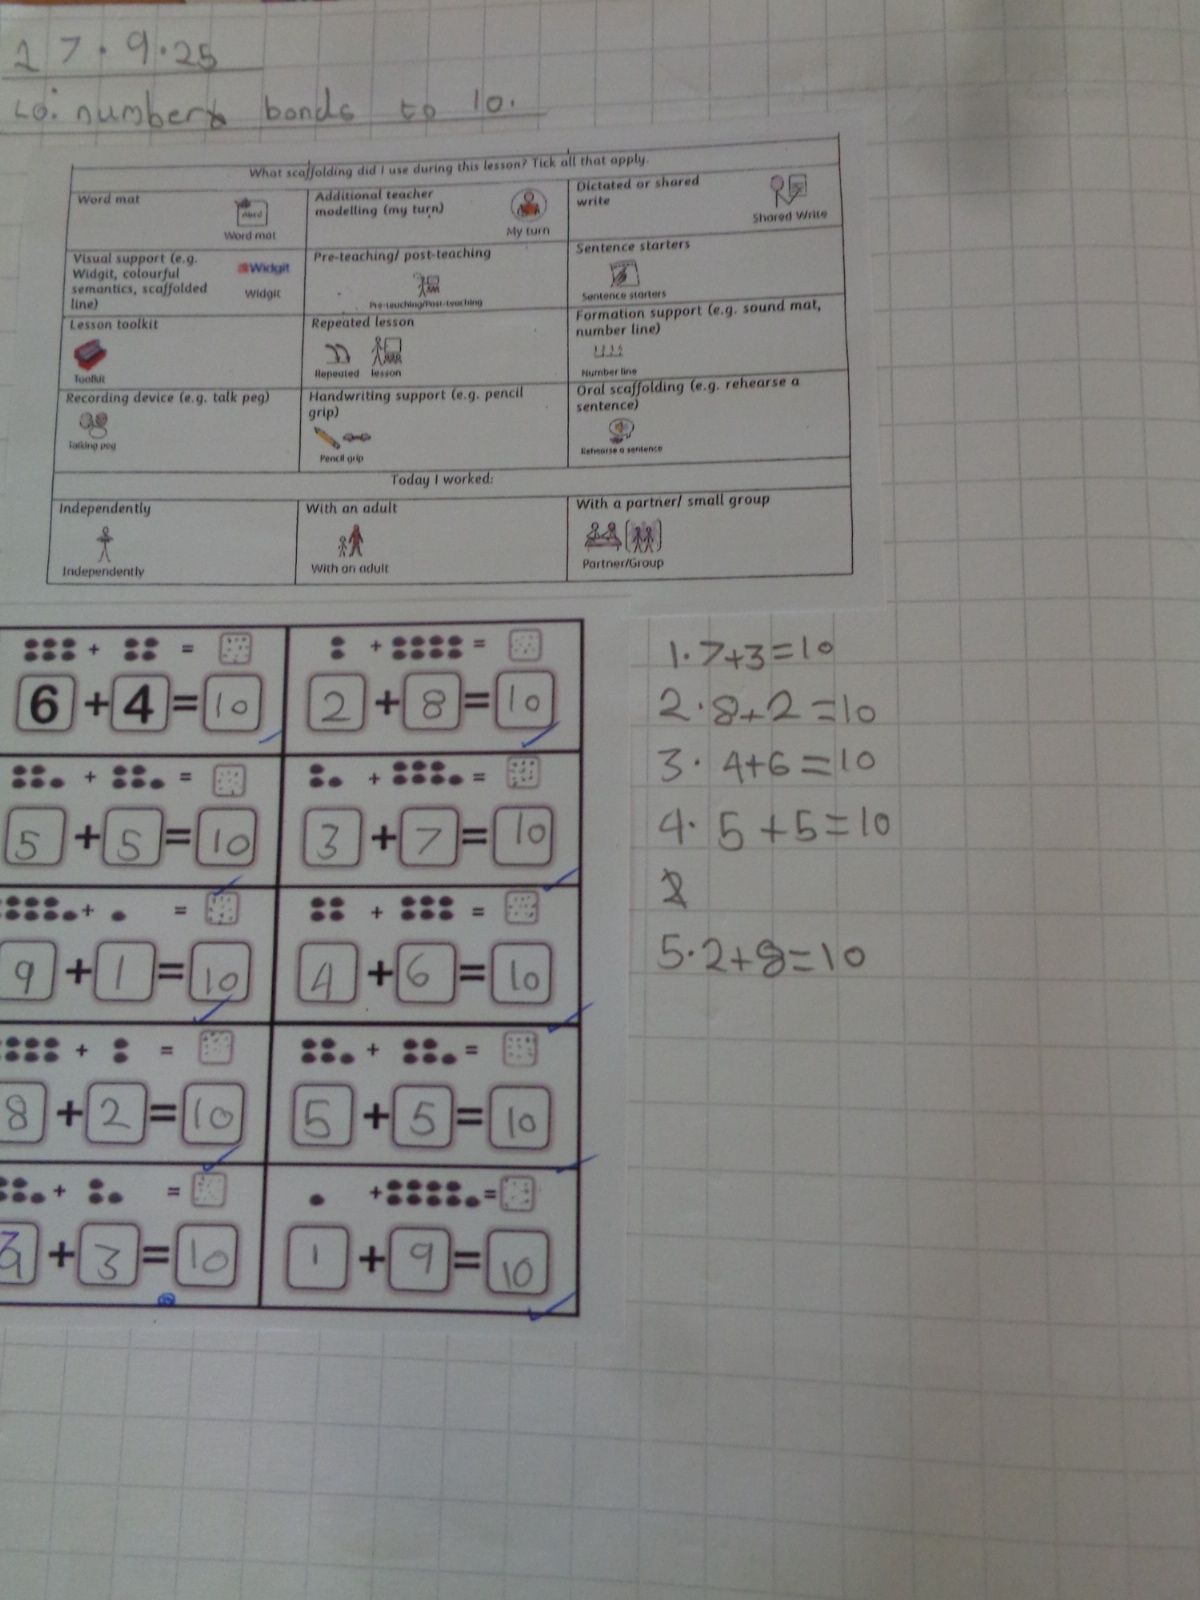 27.9.25
LO: number bonds to 10.
What scaffolding did I use during this lesson? Tick all that apply.
Word mat
Word mat
Additional teacher modelling (my turn)
My turn
Dictated or shared write
Shared Write
Visual support (e.g. Widgit, colourful semantics, scaffolded line)
Widgit
Widgit
Pre-teaching/ post-teaching
Pre-teaching/Post-teaching
Sentence starters
Sentence starters
Lesson toolkit
Toolkit
Repeated lesson
Repeated lesson
Formation support (e.g. sound mat, number line)
Number line
Recording device (e.g. talk peg)
Talking peg
Handwriting support (e.g. pencil grip)
Pencil grip
Oral scaffolding (e.g. rehearse a sentence)
Rehearse a sentence
Today I worked:
Independently
Independently
With an adult
With an adult
With a partner/ small group
Partner/Group
+ =
+ =
6 + 4 = 10
2 + 8 = 10
+ =
+ =
5 + 5 = 10
3 + 7 = 10
+ =
+ =
9 + 1 = 10
4 + 6 = 10
+ =
+ =
8 + 2 = 10
5 + 5 = 10
+ =
+ =
+ 3 = 10
1 + 9 = 10
1. 7+3=10
2. 8+2=10
3. 4+6=10
4. 5+5=10
5. 2+8=10